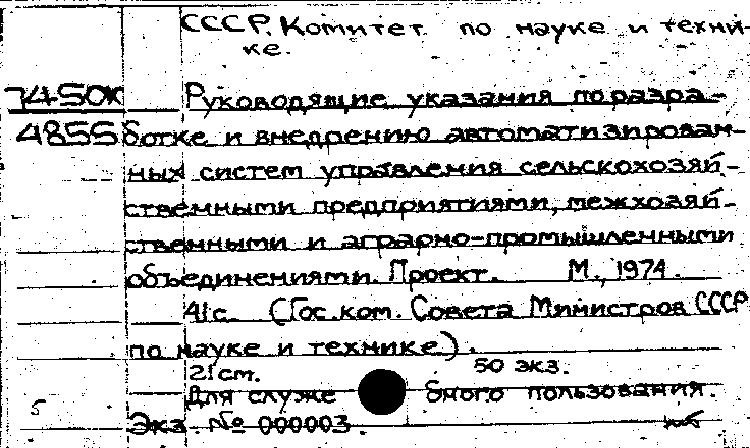 СССР. Комитет по науке и техни-
ке.
74-50к
4855
Руководящие указания по разра-
ботке и внедрению автоматизирован-
ных систем управления сельскохозяй-
ственными предприятиями, межхозяй-
ственными и аграрно-промышленными
объединениями. Проект. М., 1974.
41с. (Гос.ком. Совета Министров СССР
по науке и технике).
21см. 50 экз.
Для служе бного пользования.
5
Экз. № 000003.